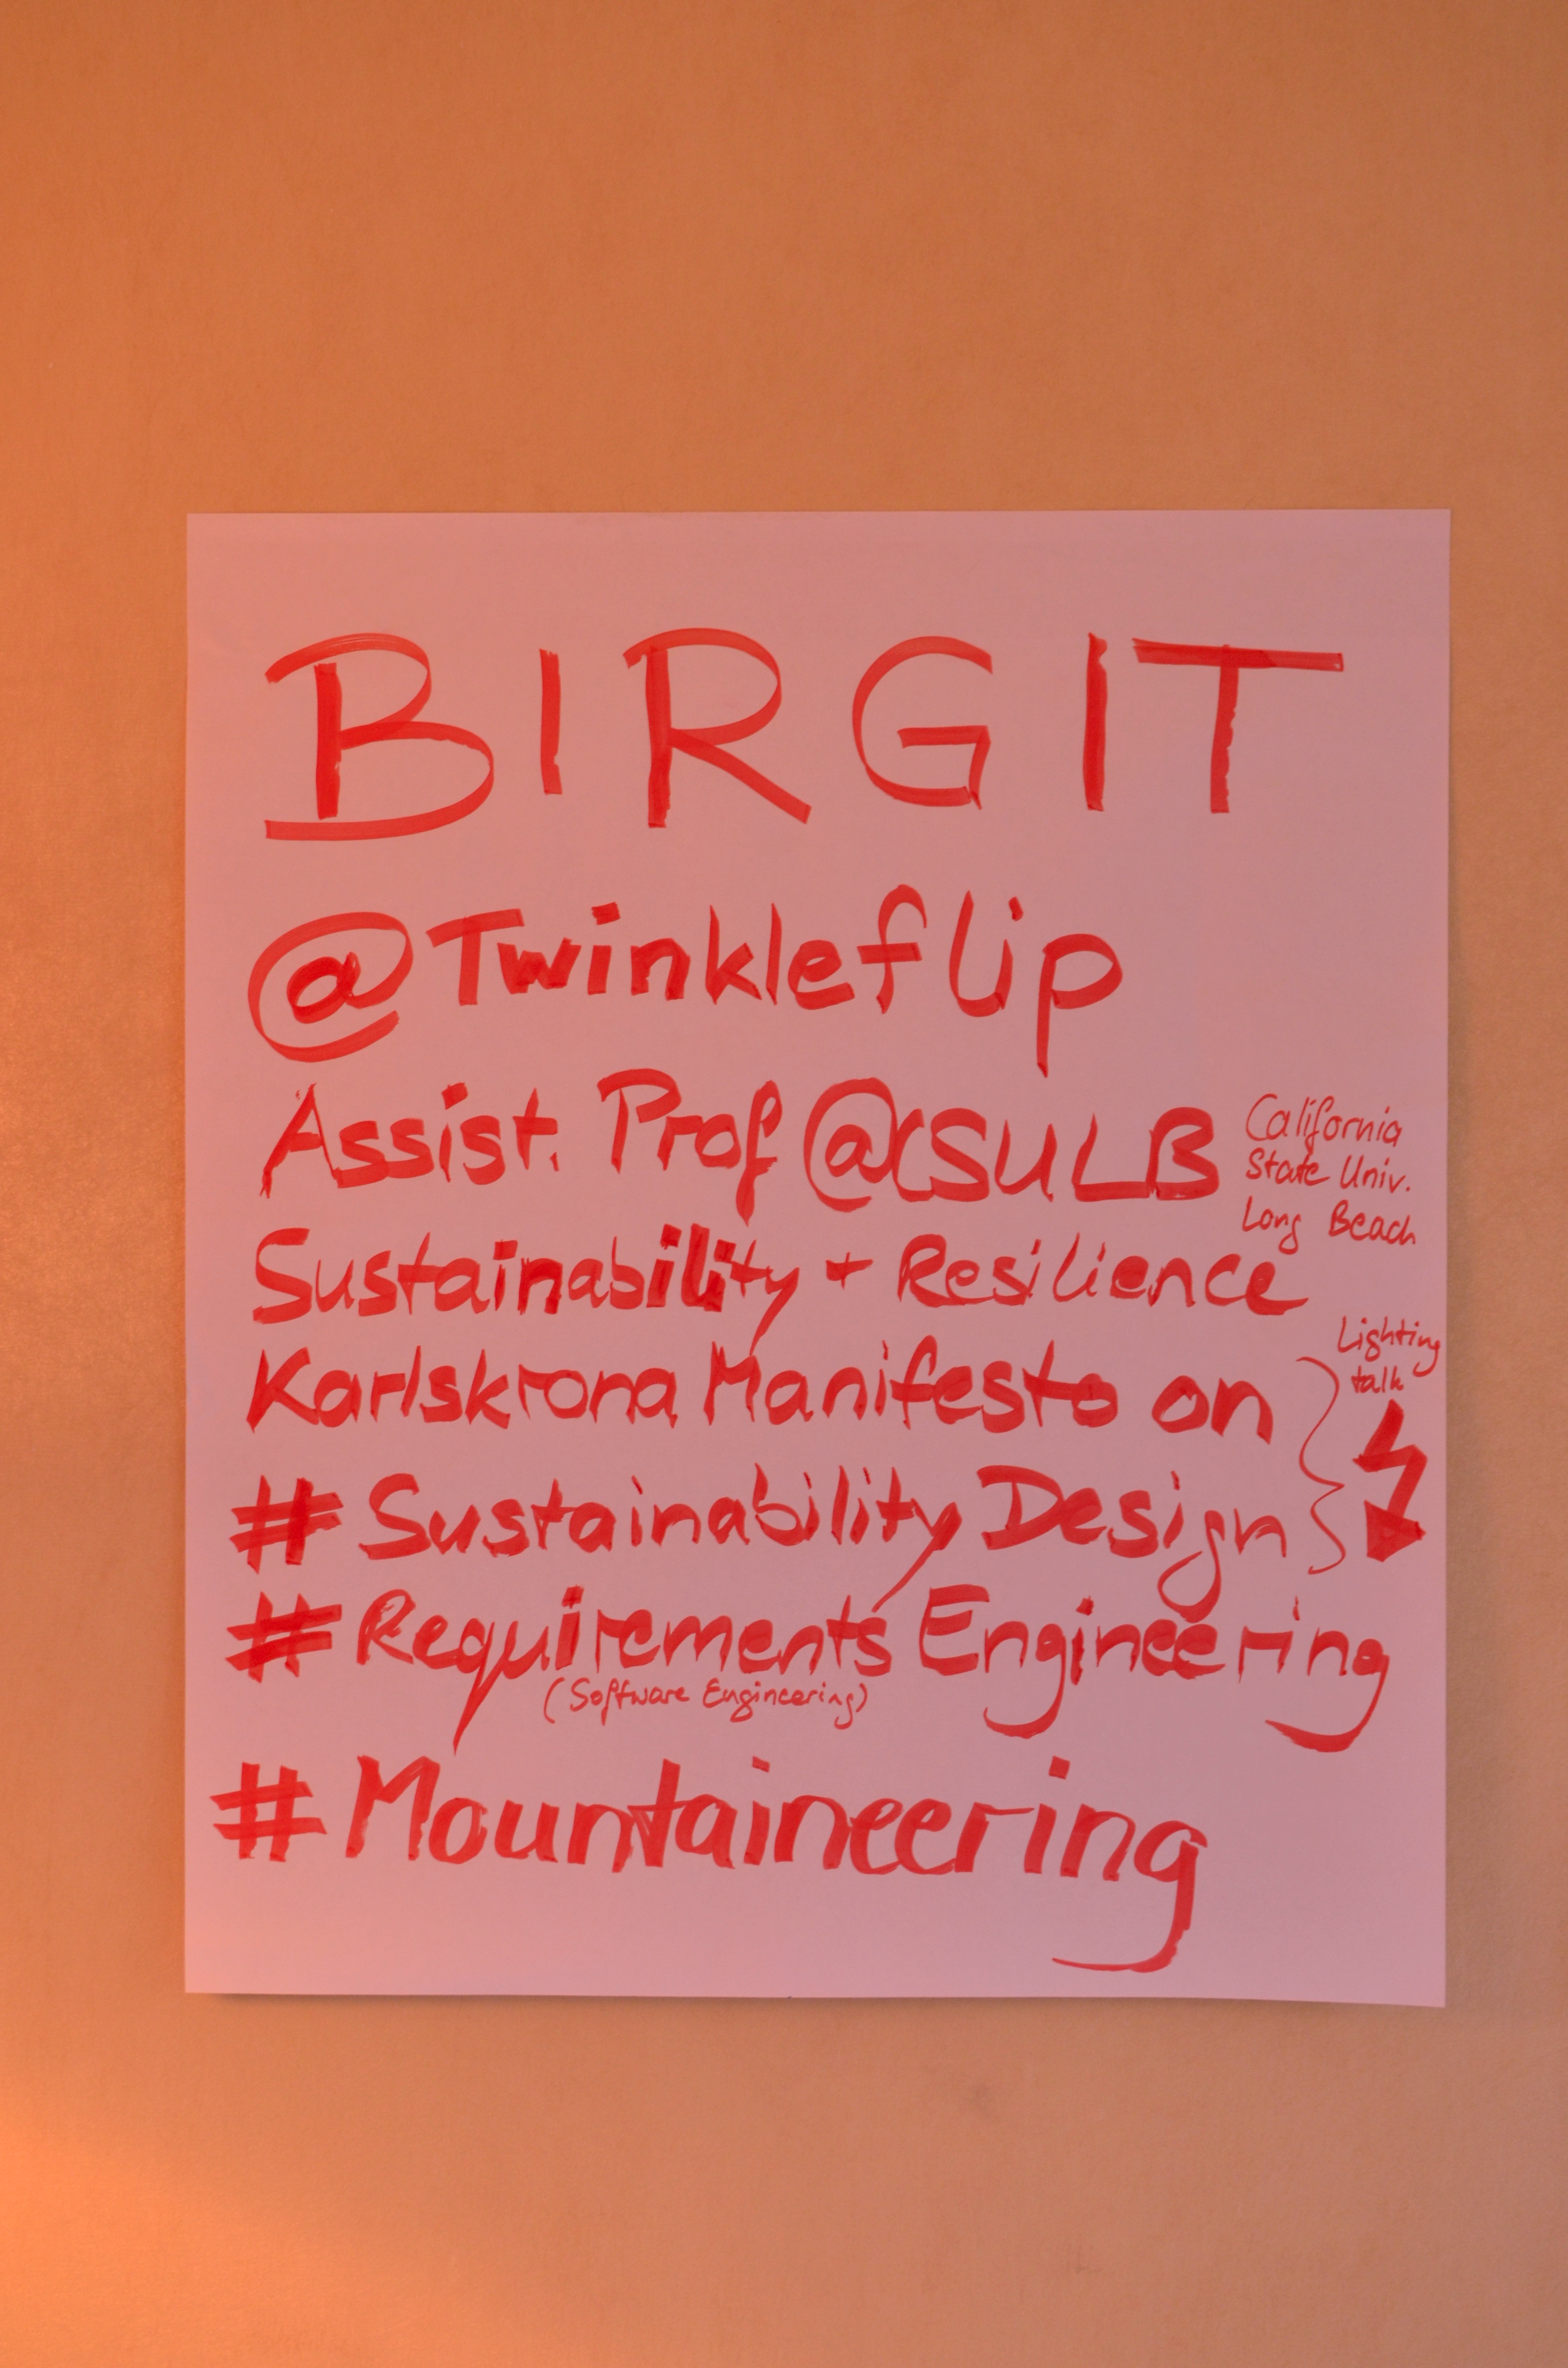 BIRGIT
@Twinkleflip
Assist. Prof @CSULB
California
State Univ.
Long Beach
Sustainability + Resilience
Karlskrona Manifesto on
Lighting
talk
# Sustainability Design
# Requirements Engineering
(Software Engineering)
# Mountaineering